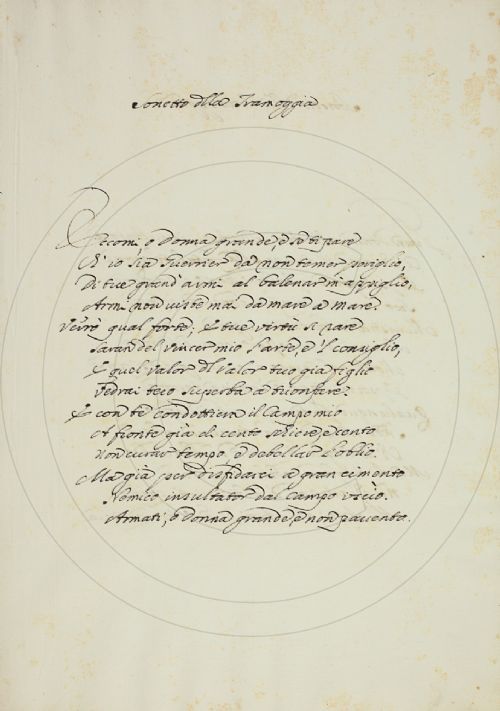 Sonetto della Tramoggia
Eccomi, o donna grande, e se ti pare
Ch'io sia Guerrier da non temer periglio,
Di tue grand'armi al balenar m'appiglio,
Armi non viste mai da mare a mare.
Verrò qual forte; e tue virtù sì rare
Saran del vincer mio l'arte, e 'l consiglio,
E quel valor del valor tuo già figlio
Vedrai teco superba a
E con te condottiera il Campo mio
A fronte già di cento schiere, e cento
Non curar tempo, e debellar l'oblio.
Ma già per disfidarci a gran cimento
Nemico insultator dal Campo uscìo.
Armati, o donna grande, e non pavento.